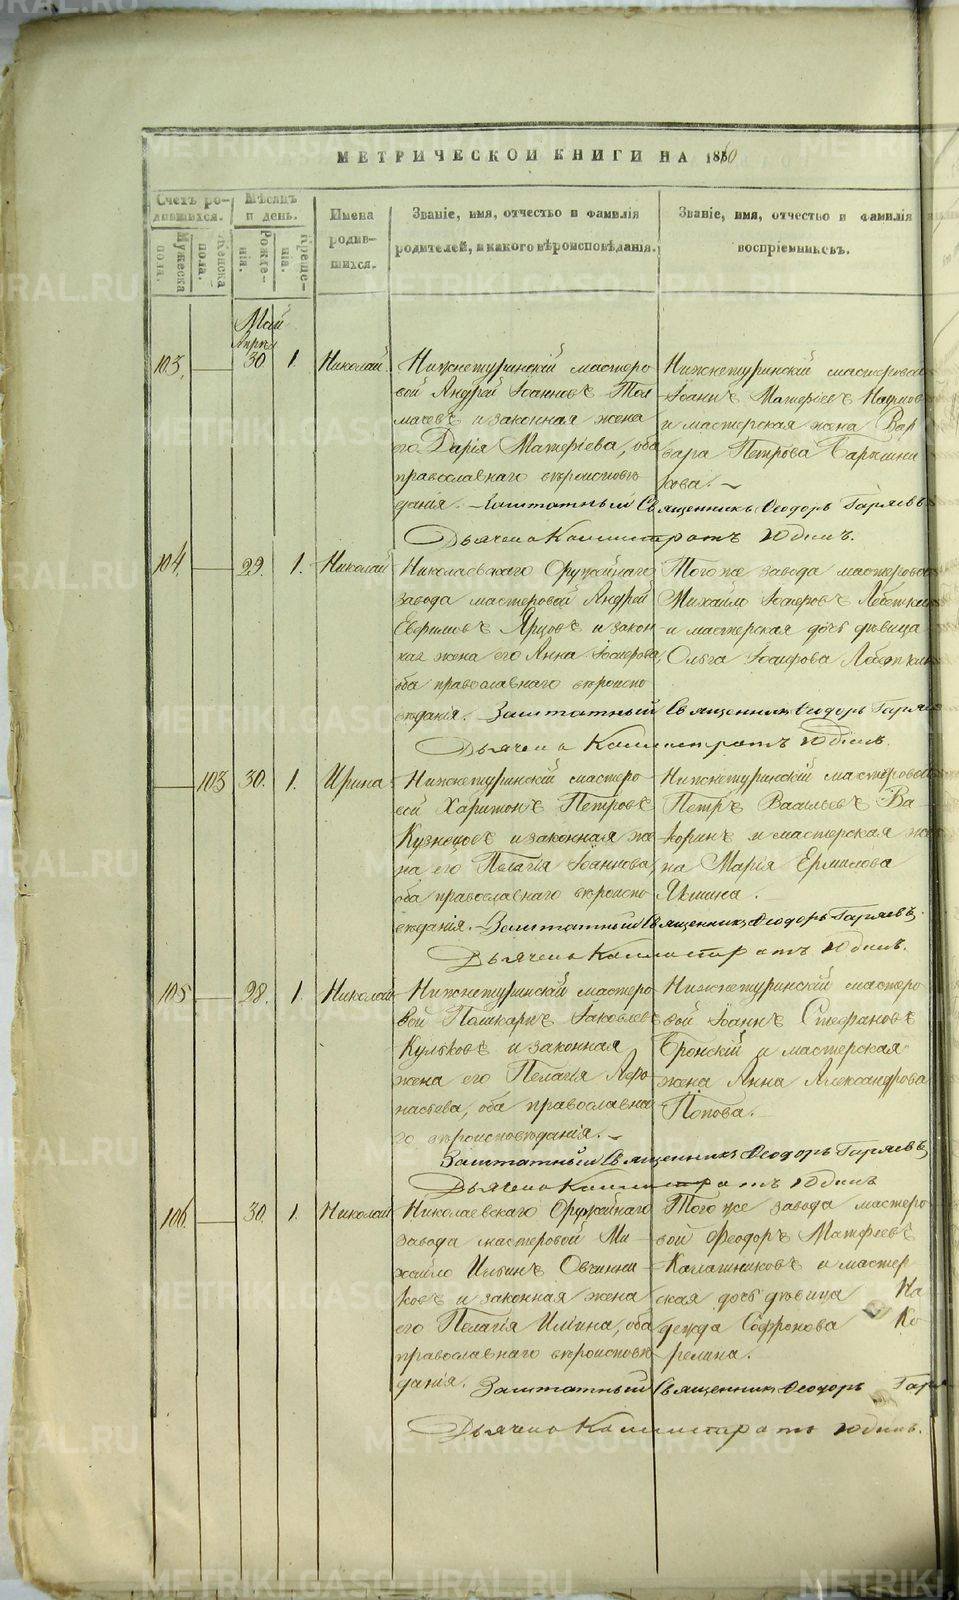 МЕТРИЧЕСКОЙ КНИГИ НА 18
Счетъ ро-
дившихся.
Мужеска
пола.
Женска
пола.
Мѣсяцъ
и день.
Рожде-
нія.
Креще-
нія.
Имена
родив-
шихся.
Званіе, имя, отчество и фамилія
родителей, и какого вѣроисповѣданія.
Званіе, имя, отчество и фамилія
воспріемниковъ.
Май
Апрѣл
103.
30
1.
Николай
Нижнетуринскій мастеро-
вой Андрей Іоанновъ Тол
мачевъ и законная жена
его Дарія Матѳіева, оба
православнаго вѣроисповѣ
данія.
Нижнетуринскій мастеровой
Іоаннъ Матѳіевъ Наумов
и мастерская жена Вар
вара Петрова Барышни
кова.
Заштатный Священникъ Ѳеодоръ Гаряевъ
Дьячекъ Каллистратъ Юдинъ.
104.
29.
1.
Николай
Николаевскаго Оружейнаго
завода мастеровой Андрей
Евфимовъ Ярцовъ и закон
ная жена его Анна Іосифова,
оба православнаго вѣроиспо
вѣданія.
Того же завода мастеровой
Михайло Іосифовъ
и мастерская дочь дѣвица
Ольга Іосифова
Заштатный Священникъ Ѳеодоръ Гаряе
Дьячекъ Каллистратъ Юдинъ.
103
30.
1.
Ирина
Нижнетуринскій мастеро-
вой Харитонъ Петровъ
Кузнецовъ и законная же
на его Пелагія Іоаннова,
оба православнаго вѣроиспо
вѣданія.
Нижнетуринскій мастеровой
Петръ Васильевъ Ва
коринъ и мастерская же
на Марія Ермилова
Якшина.
Заштатный Священникъ Ѳеодоръ Гаряевъ.
Дьячекъ Каллистратъ Юдинъ.
105.
28.
1.
Николай
Нижнетуринскій мастеро-
вой Полікарпъ Іаковлев
Кульковъ и законная
жена его Пелагія Аѳо
насьева, оба православна
го вѣроисповѣданія.
Нижнетуринскій мастеро-
вой Іоаннъ Стефановъ
Бронскій и мастерская
жена Анна Александрова
Попова.
Заштатный Священникъ Ѳеодоръ Гаряевъ
Дьячекъ Каллистратъ Юдинъ
106.
30.
1.
Николай
Николаевскаго Оружейнаго
завода мастеровой Ми-
хайло Ильинъ Овчинни
ковъ и законная жена
его Пелагія Ильина, оба
православнаго вѣроисповѣ
данія.
Того же завода мастеро-
вой Ѳеодоръ Матѳеевъ
Калашниковъ и мастер
ская дочь дѣвица На
дежда Софронова Ко-
релина.
Заштатный Священникъ Ѳеодоръ Гаря
Дьячекъ Каллистратъ Юдинъ.
METRIKI.GASO-URAL.RU